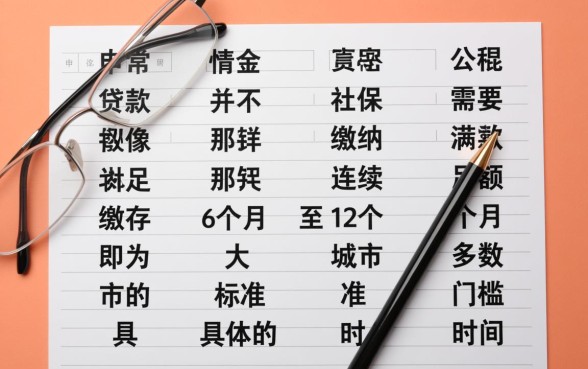 情金 公
贷款 并不 社保 需要
像 那 缴纳 满
足 那 连续 额
缴存 6个月 至12个 个月
即为 大 城市 多数
市的 标准 准 门槛
具 具体的 时 时间